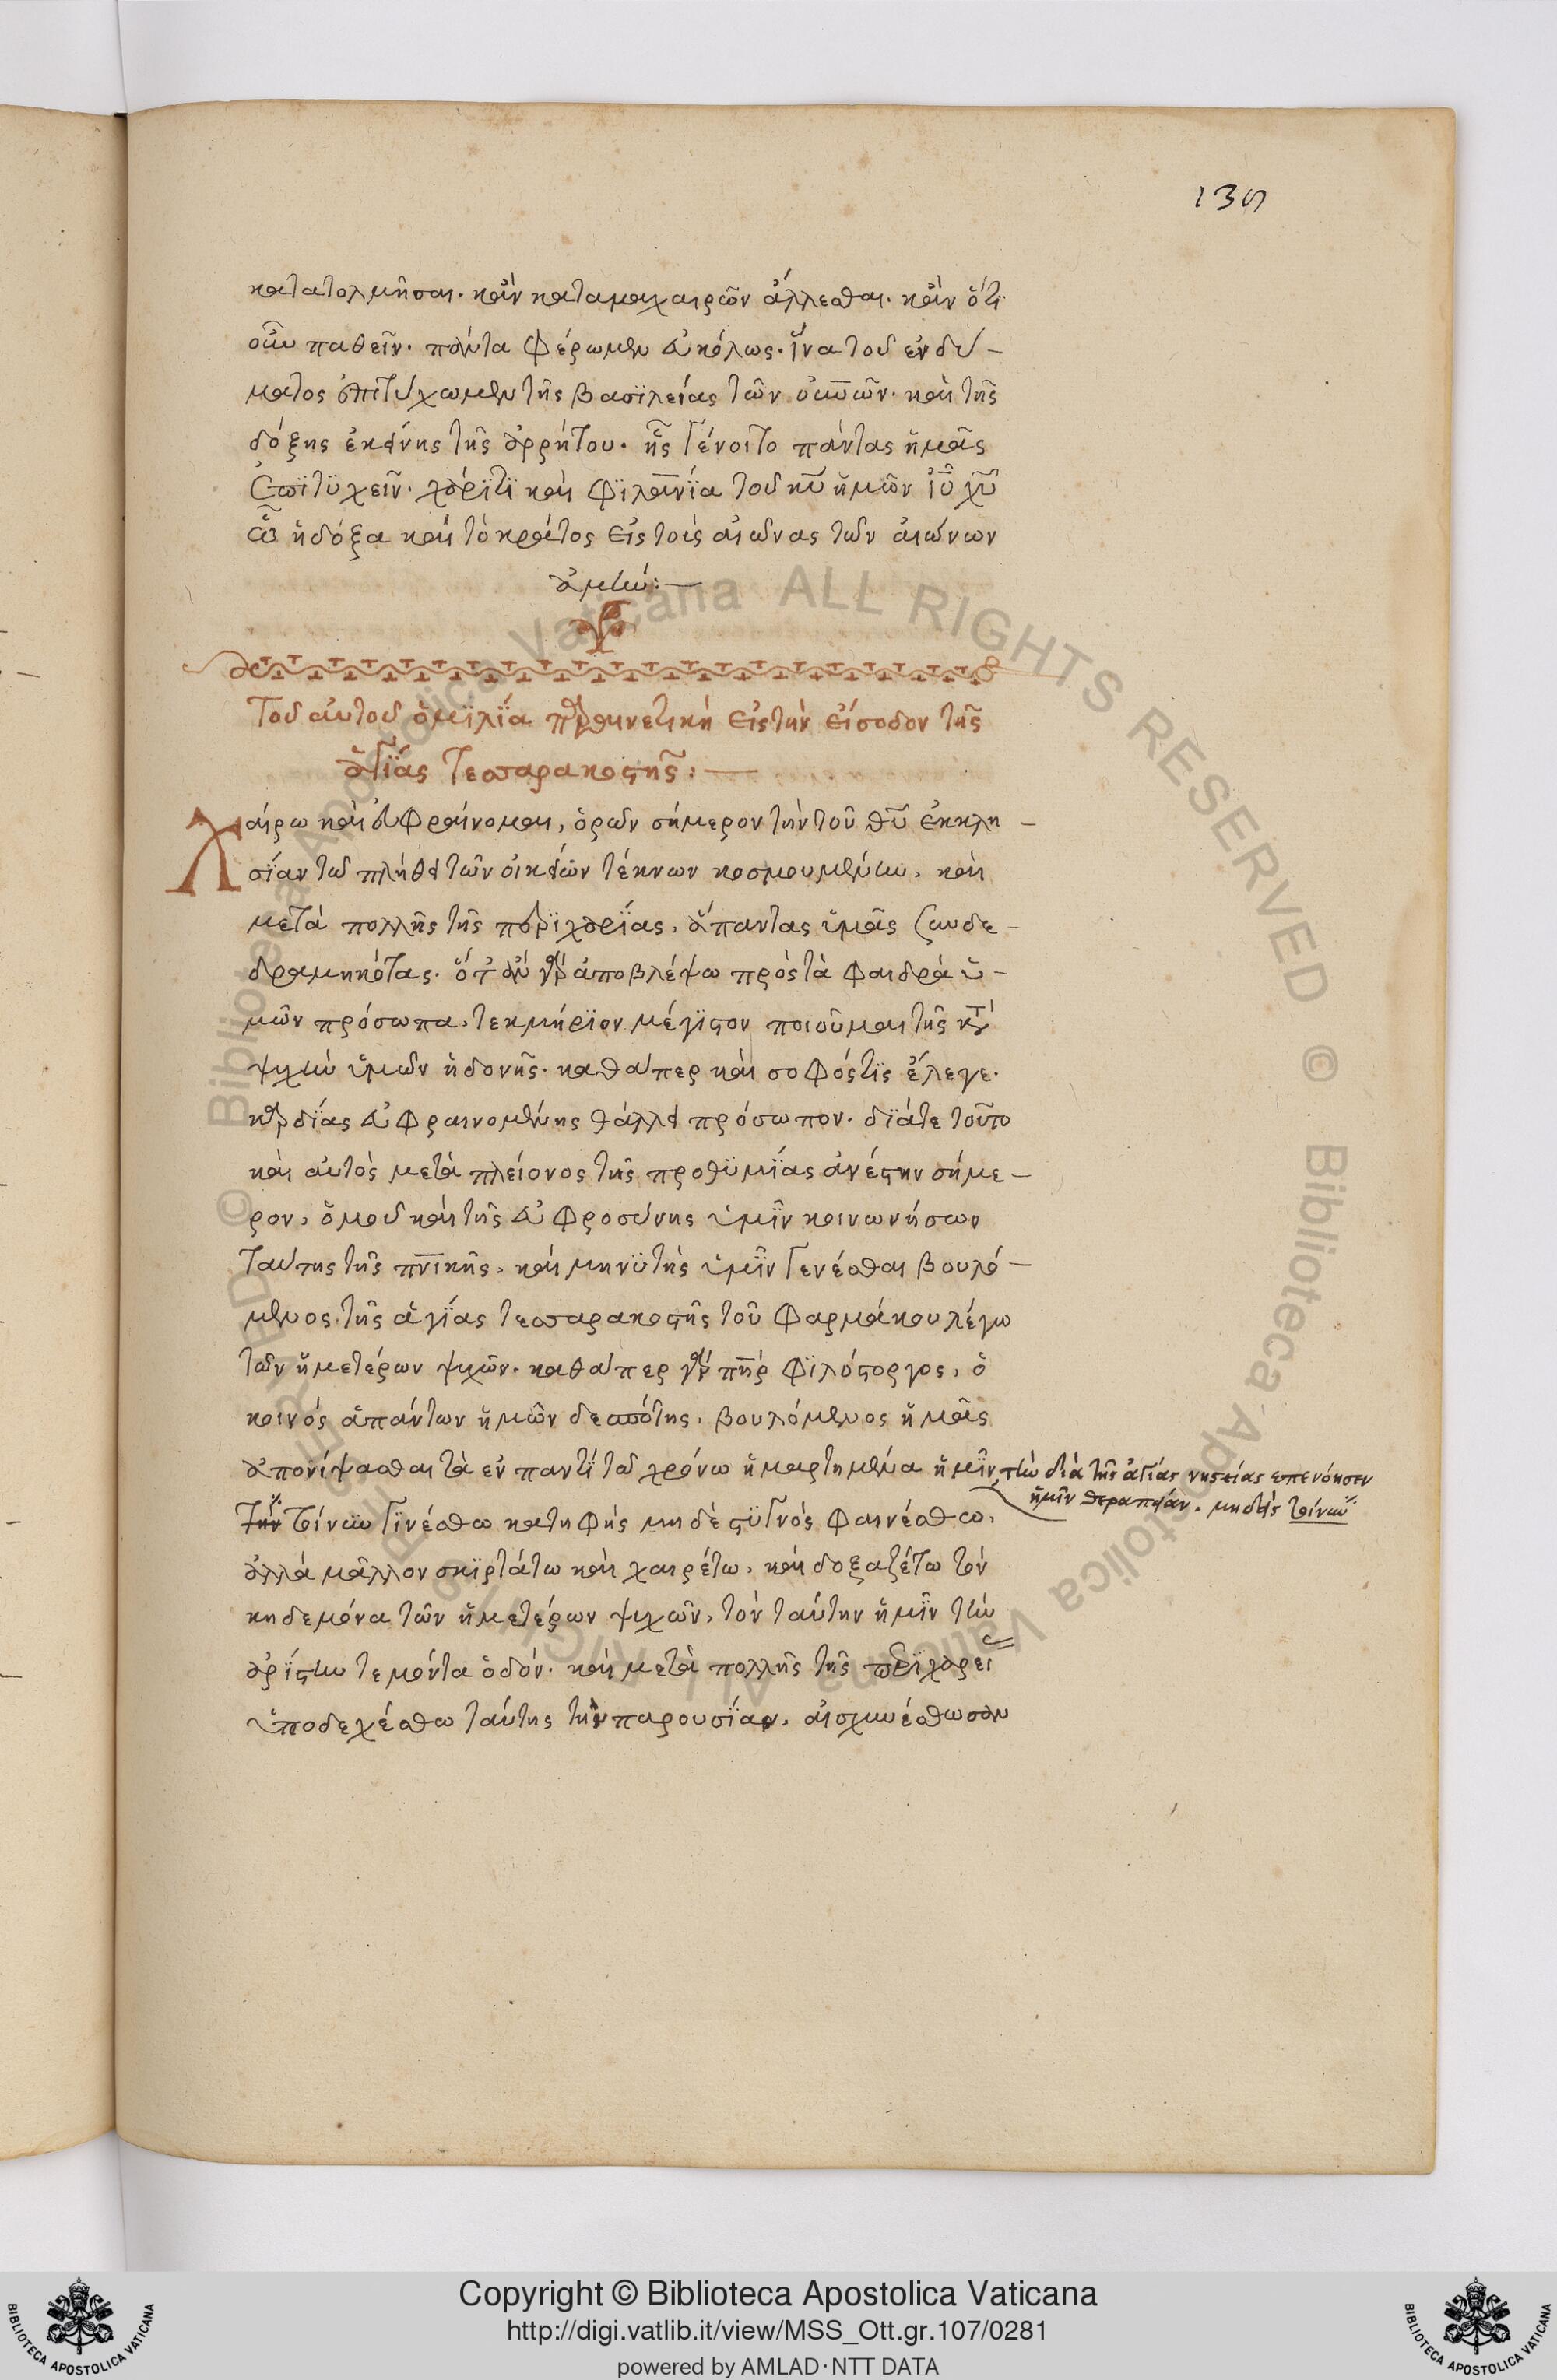 139
κατατολμῆσαι. κἂν καταμαχαιρῶν ἅλλεσθαι. κἂν ὁτι
οῦν παθεῖν. πάντα φέρωμεν εὐκόλως. ἵνα τοῦ ἐνδύ-
ματος ἐπιτύχωμεν τῆς βασϊλείας τῶν οὐνῶν. καὶ τῆς
δόξης ἐκείνης τῆς ἀρρήτου. ἧς γένοιτο πάντας ἡμᾶς
ἐπϊτϋχεῖν. χάρϊτϊ καὶ φϊλανϊα τοῦ κυ ἡμῶν ιυ χυ
ὧ ἡ δόξα καὶ τὸ κράτος εἰς τοὺς αἰωνας τῶν αἰώνων
ἀμήν:—
Τοῦ αὐτοῦ ὁμϊλϊα παραινετικὴ εἰς τὴν εἴσοδον τῆς
ἁγΐας τεσσαρακοστῆς:—
Χαίρω καὶ εὐφραίνομαι, ὁρῶν σήμερον τὴν τοῦ θυ ἐκκλη-
σΐαν τῶ πλήθει τῶν οἰκείων τέκνων κοσμουμένην, καὶ
μετὰ πολλῆς τῆς περϊχαρΐας, ἅπαντας ὑμᾶς συνδε-
δραμηκότας. ὅτ᾽ ἂν γὰρ ἀποβλέψω πρὸς τὰ φαιδρὰ ὑ-
μῶν πρόσωπα, τεκμήρϊον μέγϊστον ποιοῦμαι τῆς κατὰ
ψυχὴν ὑμῶν ἡδονῆς. καθάπερ καὶ σοφός τϊς ἔλεγε.
καρδΐας εὐφραινομένης θάλλει πρόσωπον. δϊά τε τοῦτο
καὶ αὐτὸς μετὰ πλείονος τῆς προθϋμΐας ἀνέστην σήμε-
ρον, ὁμοῦ καὶ τῆς εὐφροσύνης ὑμῖν κοινωνήσων
ταύτης τῆς πνικῆς, καὶ μηνϋτὴς ὑμῖν γενέσθαι βουλό-
μενος, τῆς ἁγΐας τεσσαρακοστῆς τοῦ φαρμάκου λέγω
τῶν ἡμετέρων ψυχῶν. καθάπερ γὰρ πηρ φϊλόστοργος, ὁ
κοινὸς ἁπάντων ἡμῶν δεσπότης, βουλόμενος ἡμᾶς
ἀπονίψασθαι τὰ ἐν παντϊ τῶ χρόνω ἡμαρτημένα ἡμῖν, τὴν διὰ τῆς ἁγίας νηστείας επενόησεν
ἡμῖν θεραπείαν. μηδεὶς τοίνυν
τὴν τοίνυν γϊνέσθω κατηφὴς μηδὲ στϋγνὸς φαινέσθω,
ἀλλὰ μᾶλλον σκϊρτάτω καὶ χαιρέτω, καὶ δοξαζέτω τὸν
κηδεμόνα τῶν ἡμετέρων ψυχῶν, τὸν ταύτην ἡμῖν τὴν
ἀρΐστην τεμόντα ὁδόν. καὶ μετὰ πολλῆς τῆς περϊχαρεί
ὑποδεχέσθω ταύτης τὴν παρουσΐαν, αἰσχυνέσθωσαν
© Biblioteca Apostolica Vaticana ALL RIGHTS RESERVED
Copyright © Biblioteca Apostolica Vaticana
http://digi.vatlib.it/view/MSS_Ott.gr.107/0281
powered by AMLAD·NTT DATA
BIBLIOTECA APOSTOLICA VATICANA
BIBLIOTECA APOSTOLICA VATICANA